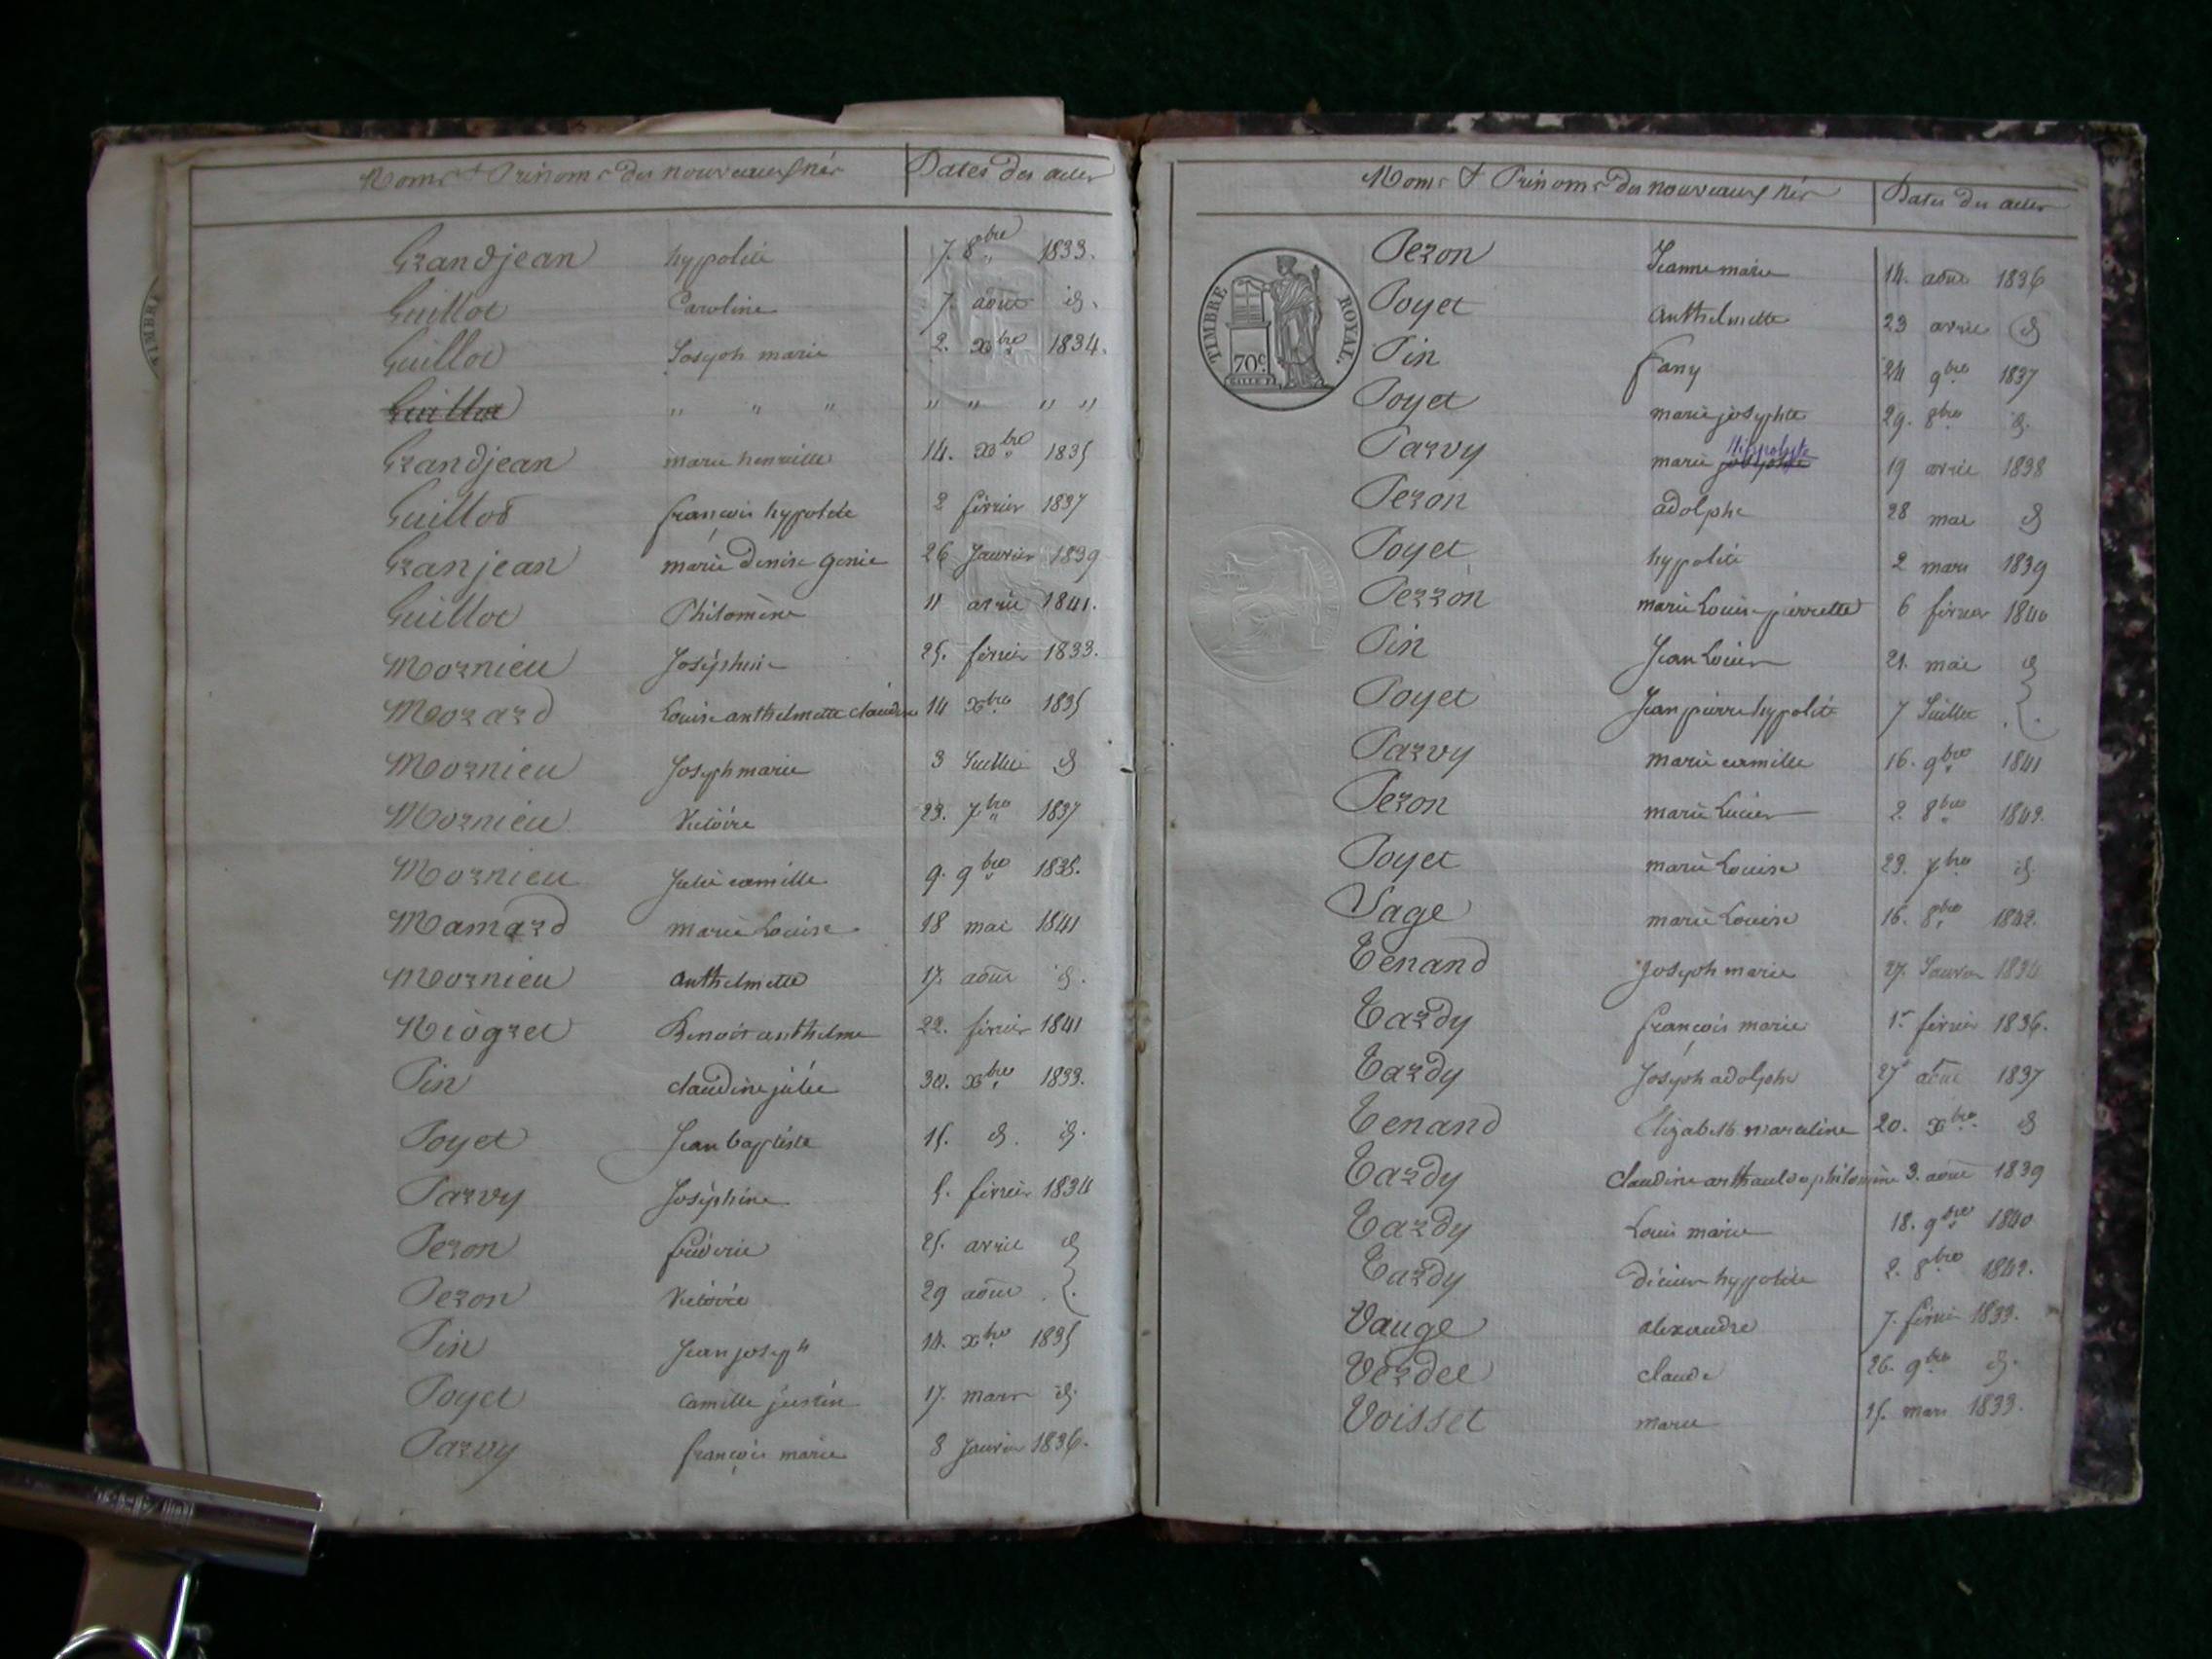 Noms & Prénoms des nouveaux nés Dates des actes
Grandjean hypolite 7. 8bre 1833.
Guillot Caroline 7. aout id.
Guillot Joseph marie 2. xbre 1834.
Guillot " " " " " " "
Grandjean marie henriette 14. xbre 1835
Guillot françois hypolite 2 février 1837
Granjean marie Denise genie 26 Janvier 1839
Guillot Philomène 11 avril 1841.
Mornieu Joséphine 25. février 1833.
Morard Louise anthelmette claudine 14 xbre 1835
Mornieu Joseph marie 3 Juillet id
Mornieu Victoire 23. 7bre 1837
Mornieu Julie camille 9. 9bre 1838.
Mamard marie Louise 18 mai 1841
Mornieu anthelmette 17. aout id.
Niogret Benoit anthelme 22. février 1841
Pin claudine julie 30. xbre 1833.
Poyet Jean baptiste 15. id. id.
Parvy Joséphine 5. février 1834
Peron fréderic 25. avril id
Peron Victoire 29 aout
Pin Jean joseph 14. xbre 1835
Poyet Camille justin 17. mars id.
Parvy françois marie 8 Janvier 1836.
Noms & Prénoms des nouveaux nés Dates des actes
TIMBRE ROYAL.
70c.
Peron Jeanne marie 14. aout 1836
Poyet anthelmette 23 avril id
Pin fany 24 9bre 1837
Poyet marie josephte 29. 8bre id.
Hippolyte
Parvy marie josephte 19 avril 1838
Peron adolphe 28 mai id
Poyet hypolite 2 mars 1839
Perron marie Louise pierrette 6 février 1840
Pin Jean Louis 21. mai id
Poyet Jean pierre hypolite 7 Juillet
Parvy marie camille 16. 9bre 1841
Peron marie Lucie 2. 8bre 1842.
Poyet marie Louise 23. 7bre id.
Sage marie Louise 16. 8bre 1842.
Tenand Joseph marie 27. Janvier 1834
Tardy françois marie 1er février 1836.
Tardy Joseph adolphe 27 aout 1837
Tenand Elizabeth marceline 20. xbre id
Tardy claudine philomène 3. aout 1839
Tardy Louis marie 18. 9bre 1840
Tardy hypolite 2. 8bre 1842.
Vauge alexandre 7. février 1833.
Verdel claude 26. 9bre id.
Voisset marie 15. mars 1833.